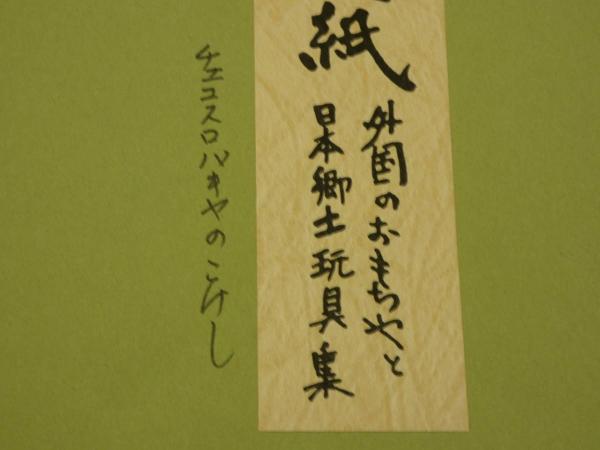 紙
外国のおもちやと
日本郷土玩具集
チェコスロバキヤのこけし